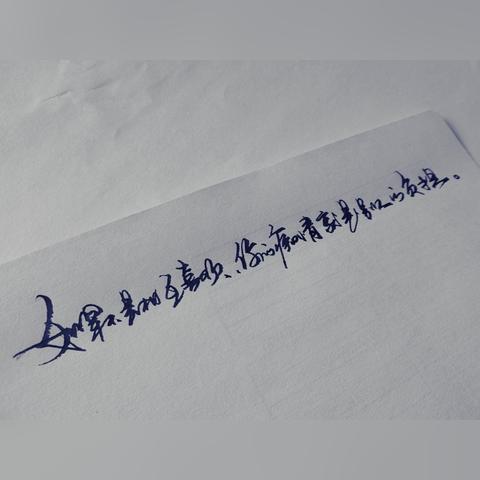 如果不是相互喜欢、你的痴情就是别人的负担。